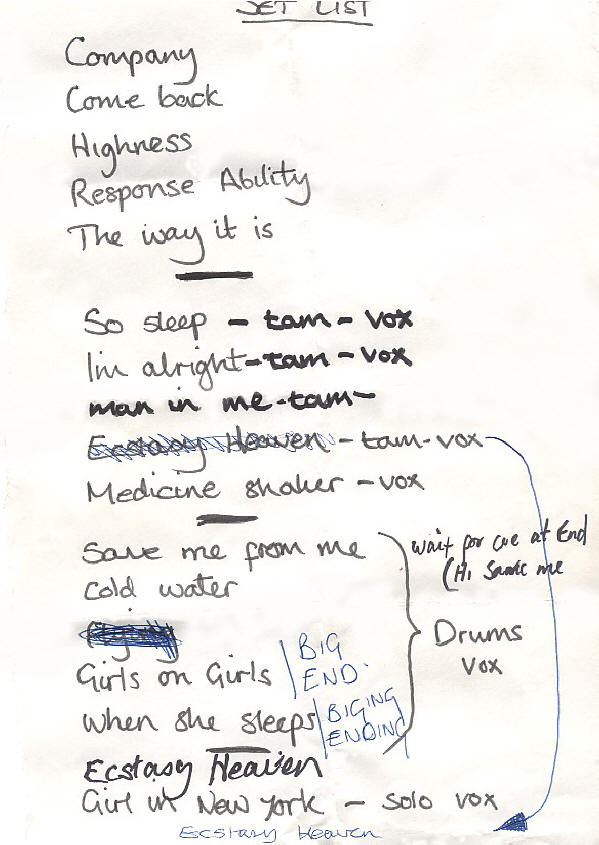 SET LIST
Company
Come back
Highness
Response Ability
The way it is
So sleep - tam - vox
I'm alright - tam - vox
man in me - tam -
Ecstasy Heaven - tam - vox
Medicine shaker - vox
Save me from me
Cold water
Girls on Girls
BIG
END
When she sleeps
BIGING
ENDING
wait for cue at End
(Hi
me
Drums
vox
Ecstasy Heaven
Girl in New York - solo vox
Ecstasy Heaven